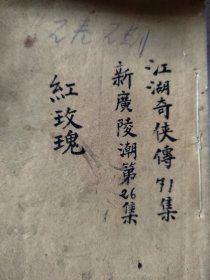 江湖奇侠傳 71集
新廣陵潮第26集
紅玫瑰